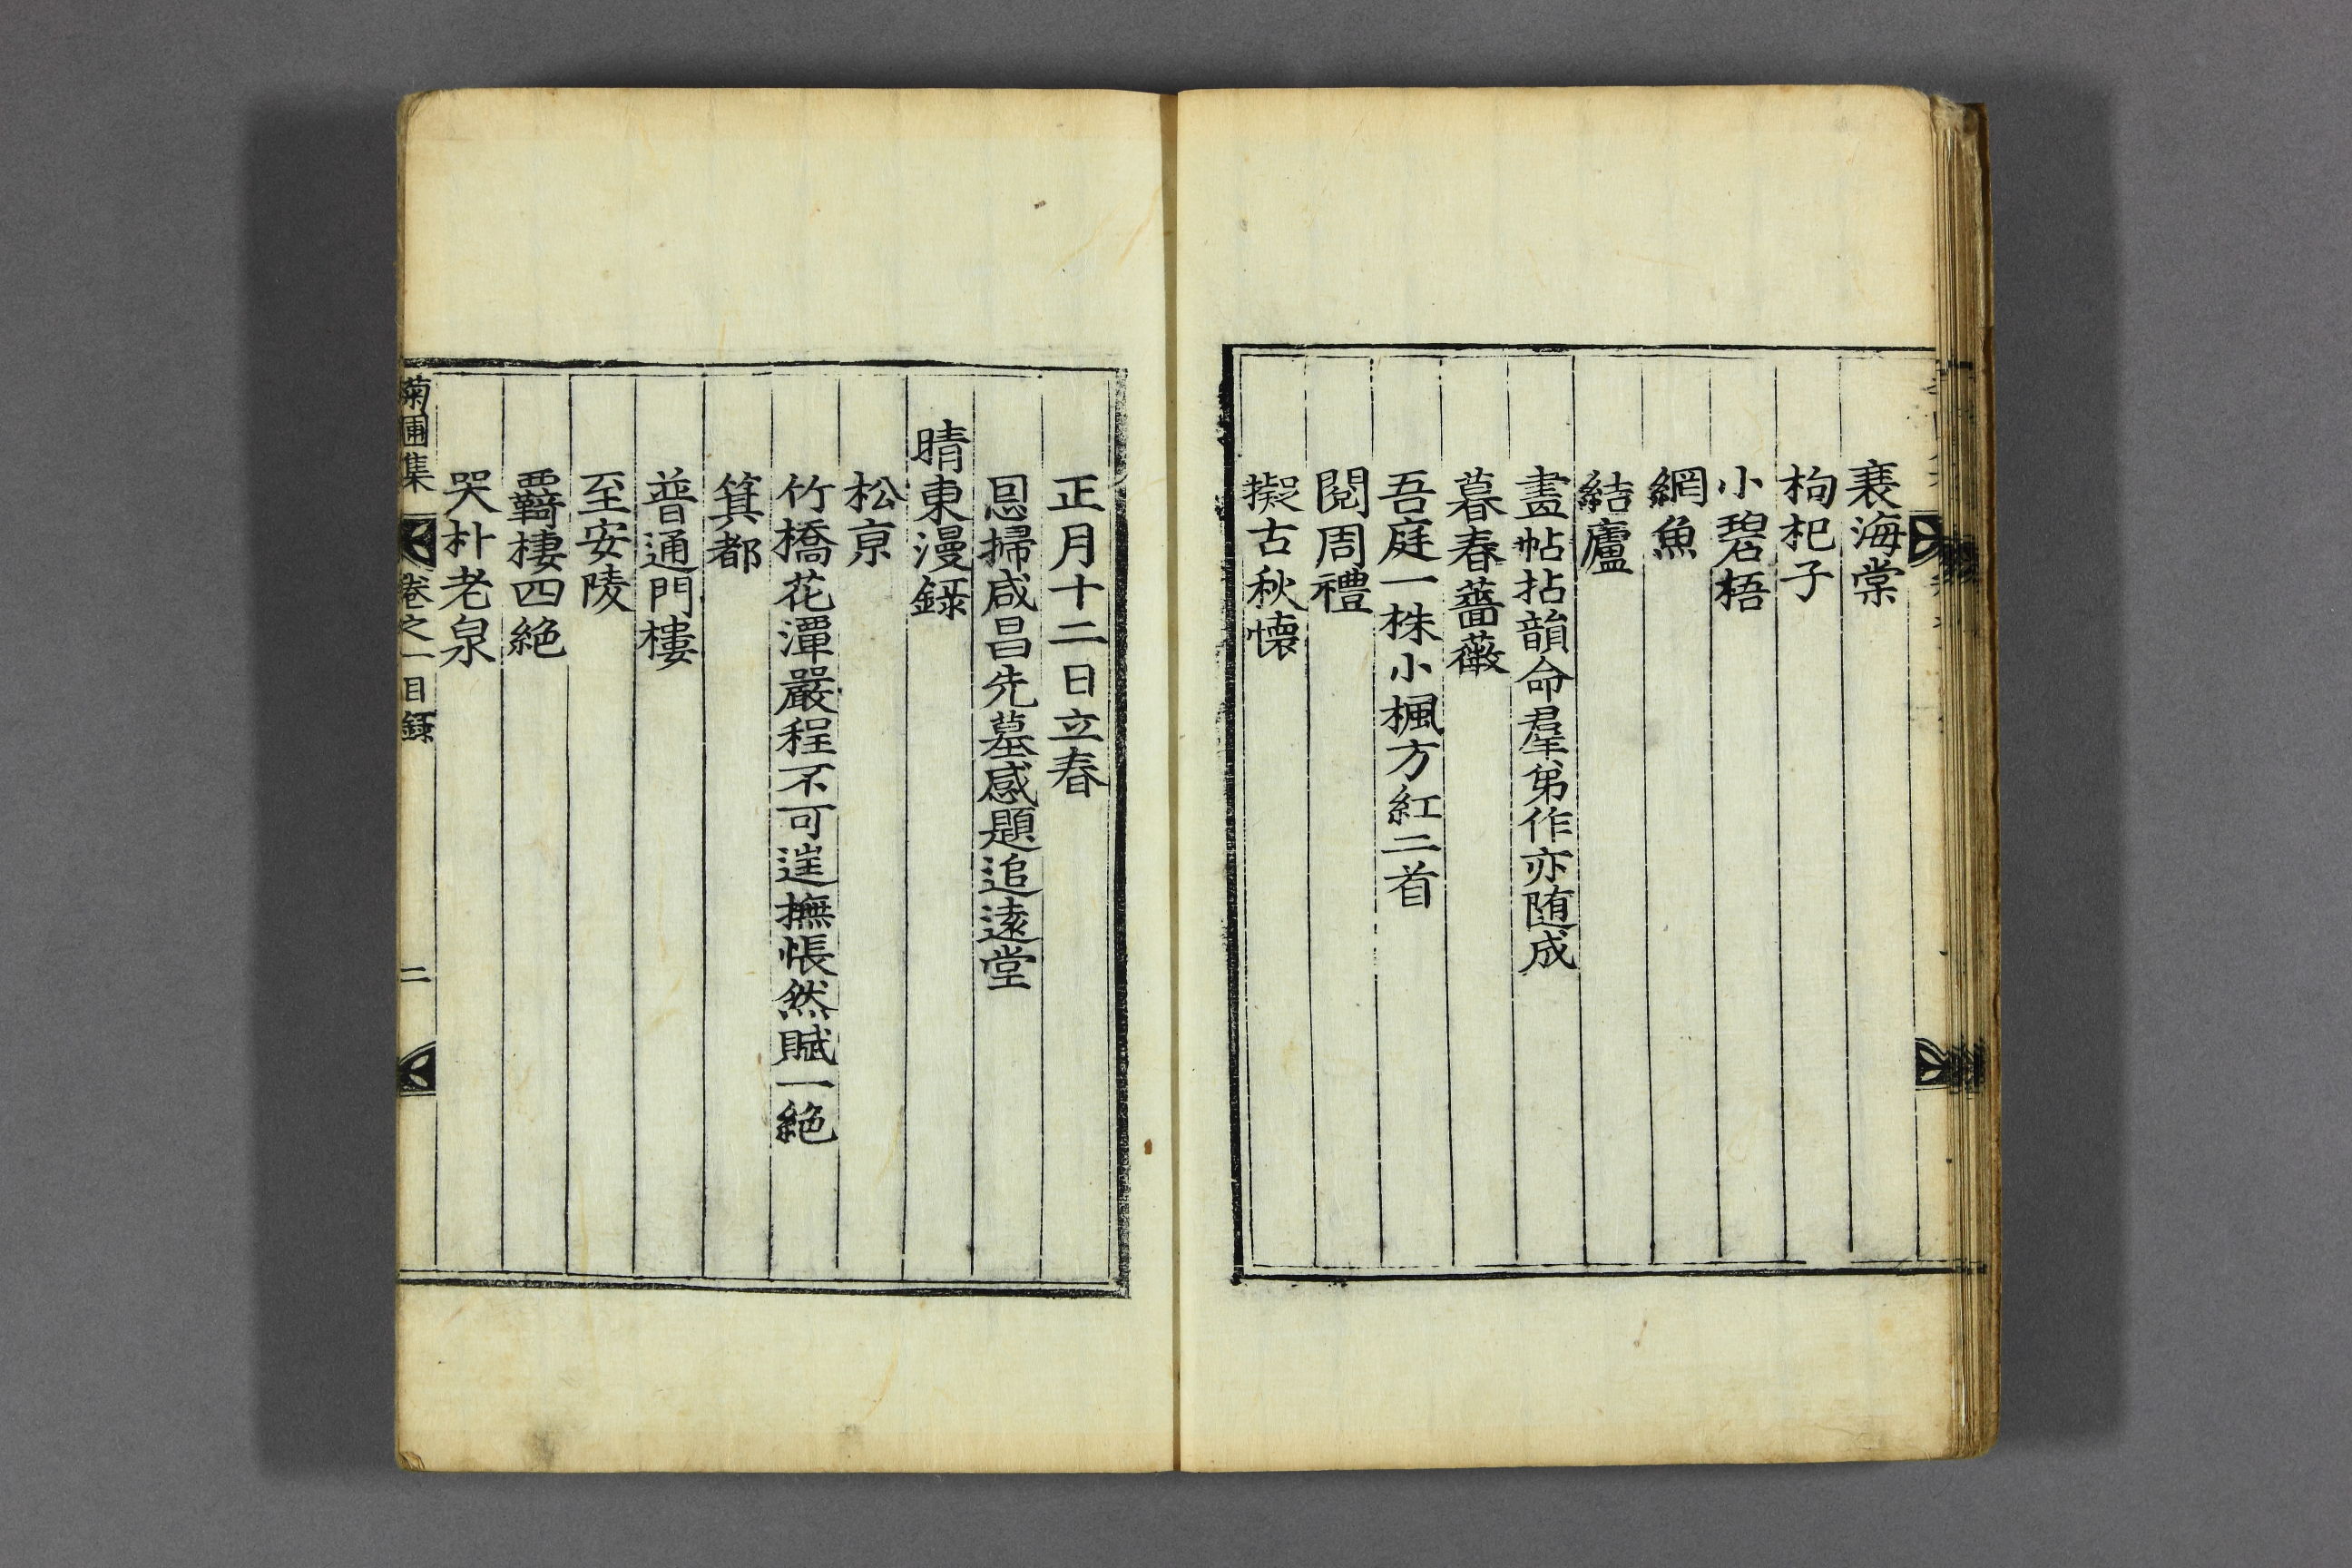 裵海棠
枸杞子
小碧梧
網魚
結廬
畫帖拈韻命羣弟作亦随成
暮春薔薇
吾庭一株小楓方紅二首
閱周禮
擬古秋懷
正月十二日立春
恩掃咸昌先墓感題追遠堂
晴東漫錄
松京
竹橋花潭嚴程不可遑撫悵然賦一絶
箕都
普通門樓
至安陵
覉棲四絶
哭朴老泉
菊圃集 卷之一目錄 二